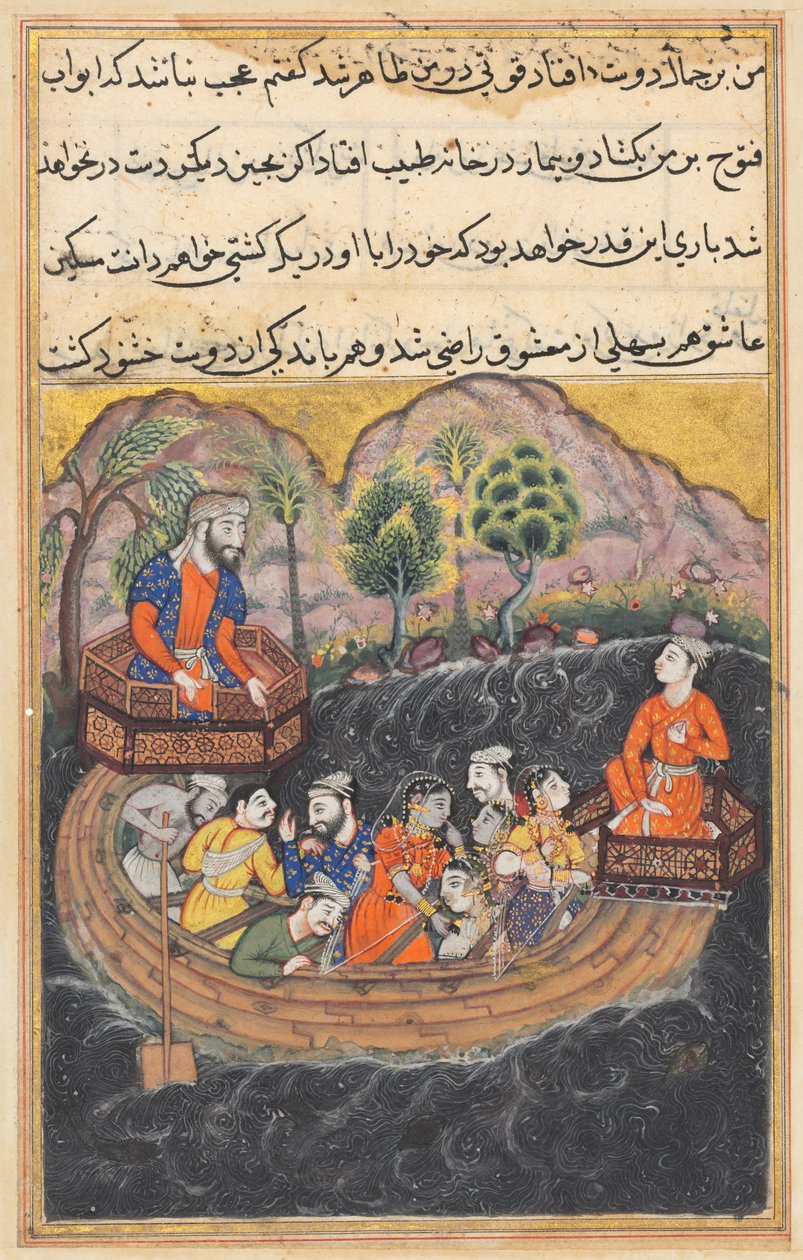 من بر جمال دوست افتاد قوتی در من ظاهر شد گفتم عجب نباشد که ابواب
فتوح بر من بکشاد و بیمار در خانه طبیب افتاد اکر بجیز دیکر دست در نخواهد
شد باری این قدر خواهد بود که خود را با او در یک کشتی خواهم دانست مسکین
عاشق هم بسهلی از معشوق راضی شد و هم باندکی از دوست خشنود کشت